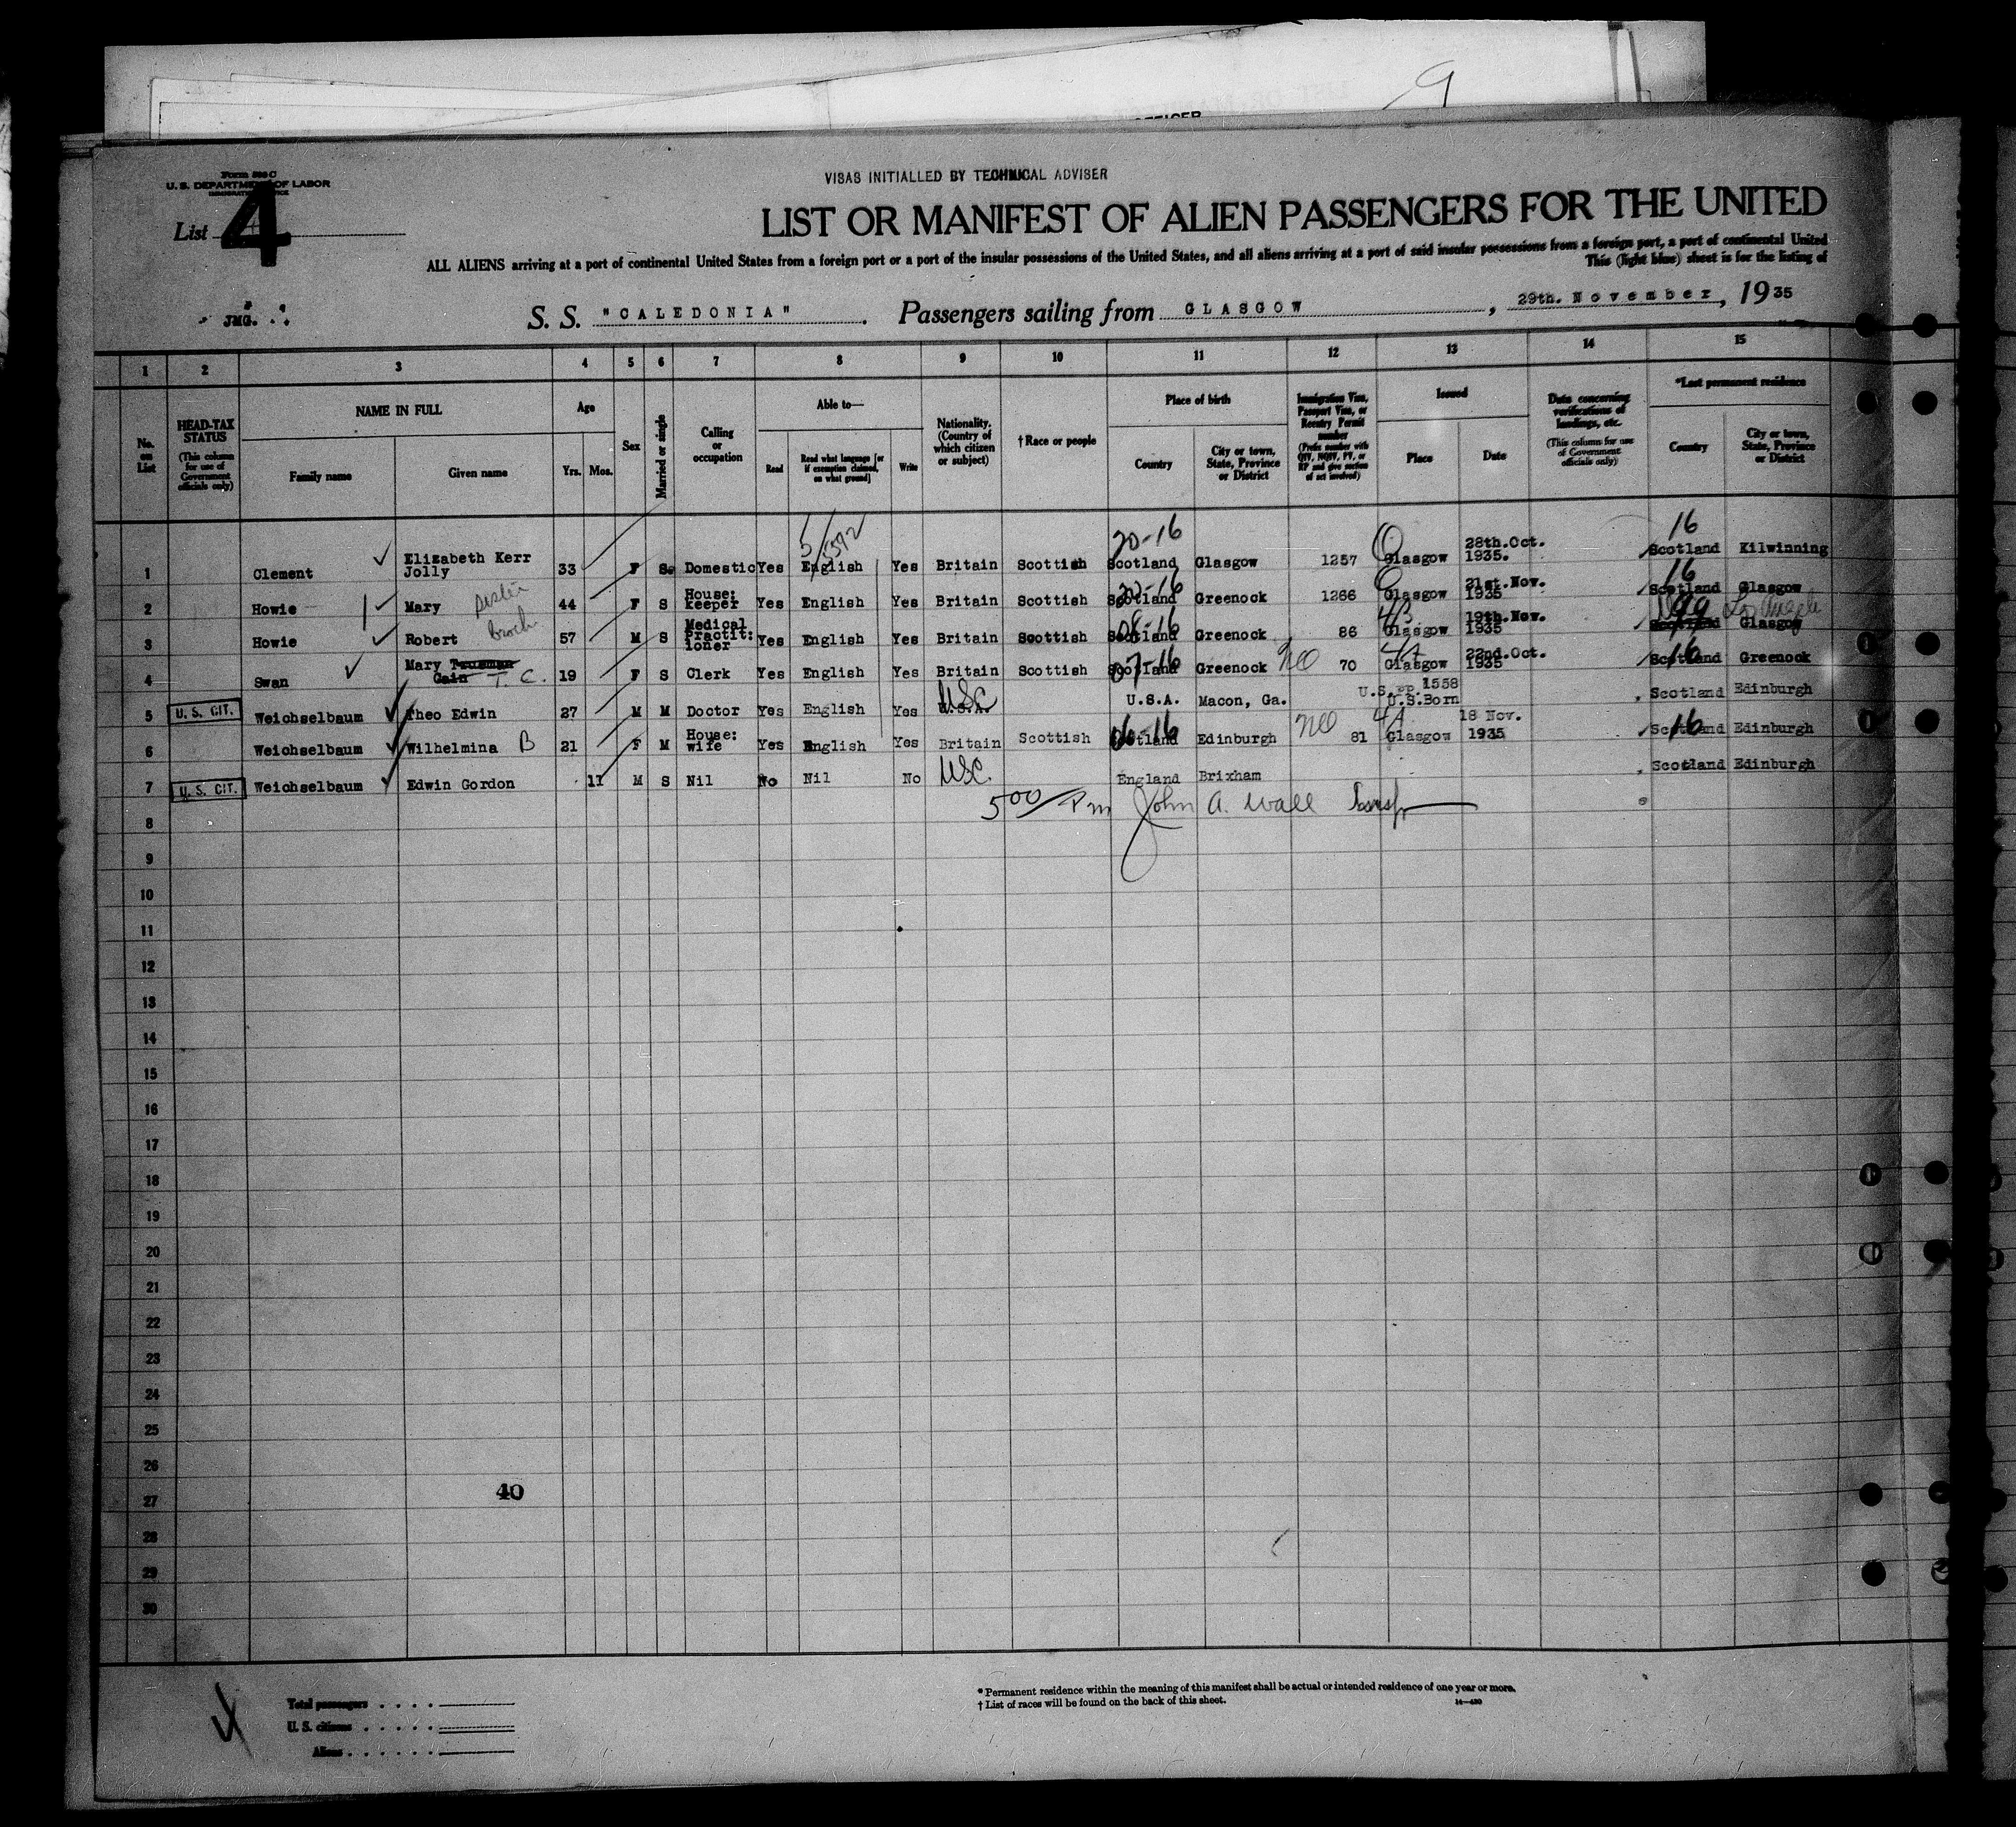 9
OFFICER
Form 500 C
U. S. DEPARTMENT OF LABOR
VISAS INITIALLED BY TECHNICAL ADVISER
List 4
LIST OR MANIFEST OF ALIEN PASSENGERS FOR THE UNITED
ALL ALIENS arriving at a port of continental United States from a foreign port or a part of the insular possessions of the United States, and all aliens arriving at a port of said insular possessions from a foreign port, a port of continental United
This (light blue) sheet is for the listing of
JMG.
S. S. "CALEDONIA" Passengers sailing from GLASGOW, 29th. November, 1935
1 2 3 4 5 6 7 8 9 10 11 12 13 14 15
No. on List
HEAD-TAX STATUS (This column for use of Government officials only)
NAME IN FULL
Family name Given name
Age
Yrs. Mos.
Sex
Married or single
Calling or occupation
Able to—
Read Read what language [or if exemption claimed, on what ground] Write
Nationality. (Country of which citizen or subject)
† Race or people
Place of birth
Country City or town, State, Province or District
Immigration Visa, Passport Visa, or Reentry Permit number (Prefix number with QIV, NQIV, PV, or RP and give section of act involved)
Issued
Place Date
Data concerning verifications of landings, etc. (This column for use of Government officials only)
*Last permanent residence
Country City or town, State, Province or District
5/592 20-16 16
1 Clement Elizabeth Kerr Jolly 33 F S. Domestic Yes English Yes Britain Scottish Scotland Glasgow 1257 Glasgow 28th.Oct. 1935. Scotland Kilwinning
2 Howie Mary sister 44 F S House: keeper Yes English Yes Britain Scottish Scotland Greenock 1266 Glasgow 21st.Nov. 1935 16 Scotland Glasgow
3 Howie Robert Broth 57 M S Medical Practit: ioner Yes English Yes Britain Scottish 08-16 Scotland Greenock 86 Glasgow 19th.Nov. 1935 99 Los Angeles Scotland Glasgow
4 Swan Mary Cain T. C. 19 F S Clerk Yes English Yes Britain Scottish 07-16 Scotland Greenock no 70 Glasgow 22nd.Oct. 1935 16 Scotland Greenock
5 U. S. CIT. Weichselbaum Theo Edwin 27 M M Doctor Yes English Yes USC U.S.A. U.S.A. Macon, Ga. U.S.PP.1558 U.S.Born Scotland Edinburgh
6 Weichselbaum Wilhelmina B 21 F M House: wife Yes English Yes Britain Scottish 06-16 Scotland Edinburgh no 81 4A Glasgow 18 Nov. 1935 16 Scotland Edinburgh
7 U. S. CIT. Weichselbaum Edwin Gordon 11 M S Nil No Nil No USC. England Brixham Scotland Edinburgh
8 5 00/Pm John A. Wall Insp
9
10
11
12
13
14
15
16
17
18
19
20
21
22
23
24
25
26
27 40
28
29
30
Total passengers
U. S. citizens
Aliens
* Permanent residence within the meaning of this manifest shall be actual or intended residence of one year or more.
† List of races will be found on the back of this sheet.